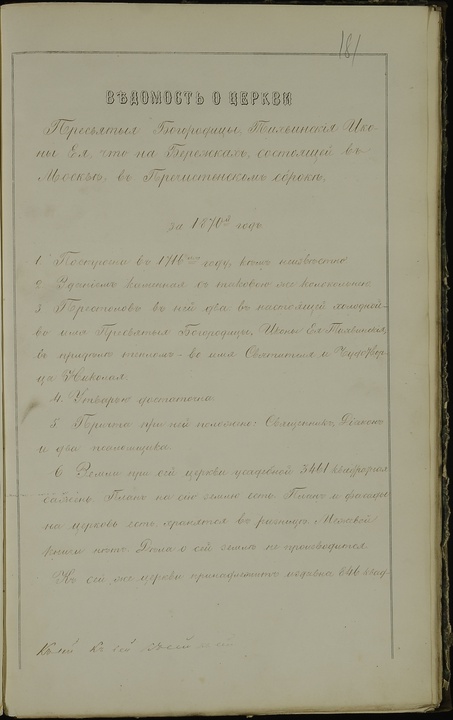 181
ВѢДОМОСТЬ О ЦЕРКВИ
Пресвятыя Богородицы, Тихвинскія Ико-
ны Ея, что на Бережкахъ, состоящей въ
Москвѣ, въ Пречистенскомъ сорокѣ,
за 1870й годъ
1 Построена въ 1716мъ году, кѣмъ неизвѣстно
2 Зданіемъ каменная съ таковою же колокольнею
3 Престоловъ въ ней два въ настоящей холодной-
во имя Пресвятыя Богородицы, Иконы Ея Тихвинскія,
въ придѣлѣ тепломъ - во имя Святителя и Чудотвор-
ца Николая.
4. Утварью достаточна.
5 Причта при ней положено: Священникъ, Діаконъ
и два псаломщика.
6. Земли при сей церкви усадебной 3461 квадратная
сажень. Планъ на сію землю есть. Планъ и фасадъ
на церковь есть, хранятся въ ризницѣ. Межевой
книги нѣтъ. Дѣла о сей землѣ не производится
Къ сей же церкви принадлежитъ 846 квад-